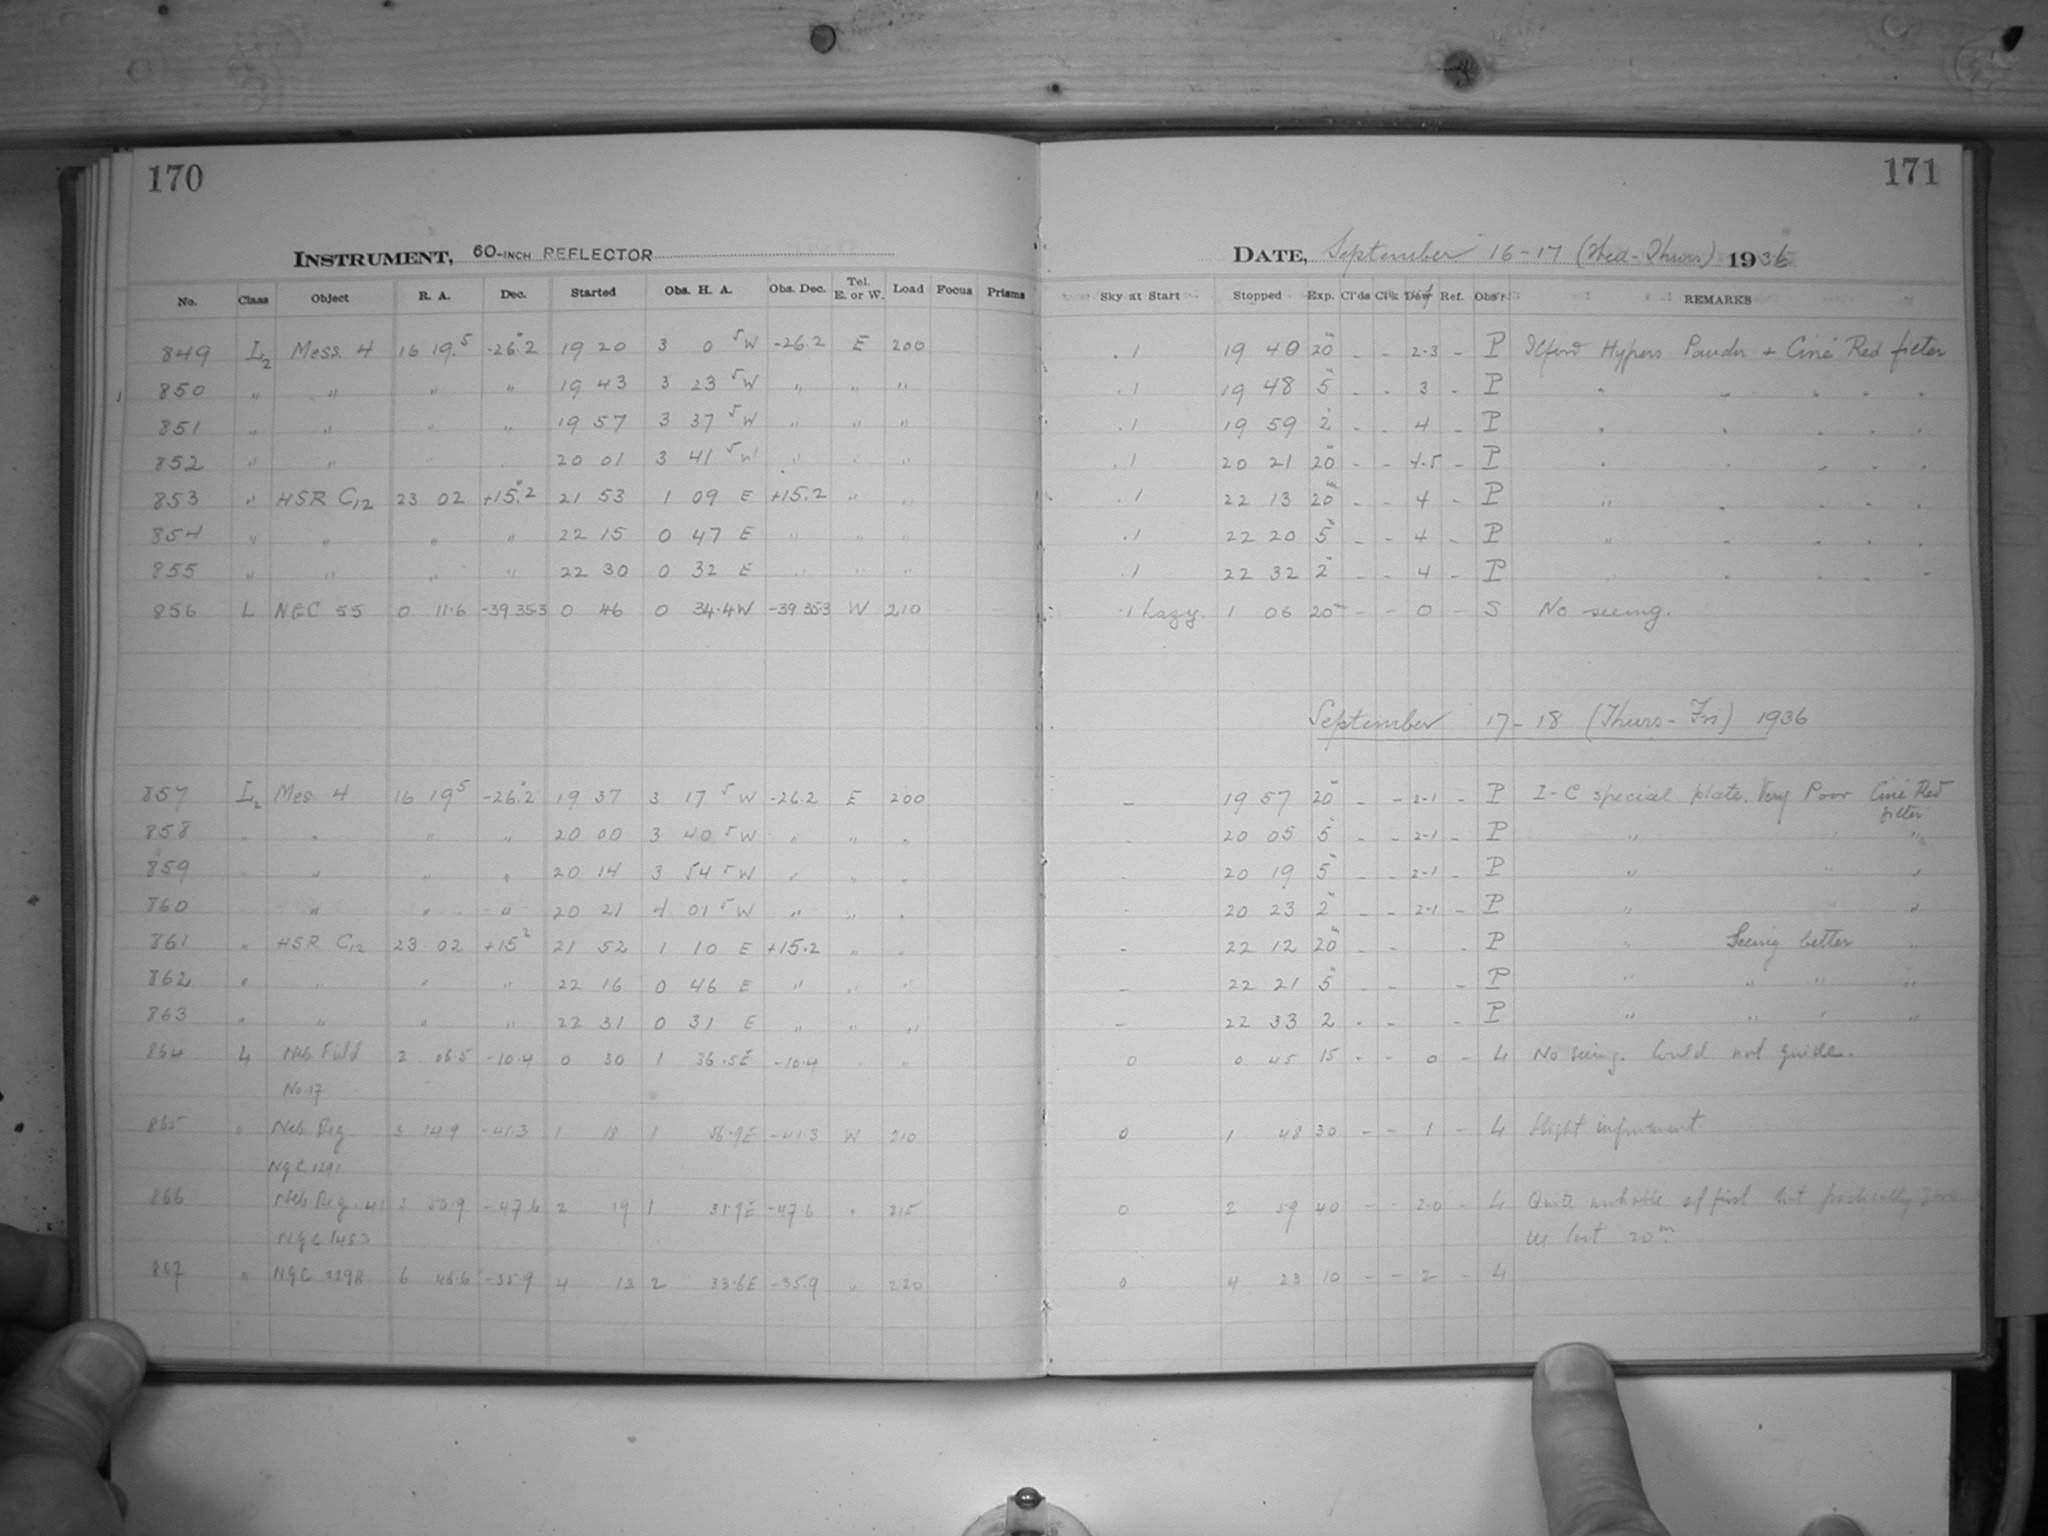 170
171
INSTRUMENT, 60-INCH REFLECTOR
DATE, September 16-17 (Wed-Thurs) 1936
No. Class Object R. A. Dec. Started Obs. H. A. Obs. Dec. Tel. E. or W. Load Focus Prisms Sky at Start Stopped Exp. Cl'ds Cl'k Ref. Obs'r REMARKS
849 L2 Mess. 4 16 19.5 -26.2 19 20 3 0 5 W -26.2 E 200 .1 19 40 20m - - 2-3 - P Ilford Hypers Pancho + Ciné Red filter
850 " " " " 19 43 3 23 5 W " " " .1 19 48 5 - - 3 - P " " " " "
851 " " " " 19 57 3 37 5 W " " " .1 19 59 2 - - 4 - P " " " " "
852 " " 20 01 3 41 5 W " " " .1 20 21 20 - - 4-5 - P " " " " "
853 " HSR C12 23 02 +15.2 21 53 1 09 E +15.2 " " .1 22 13 20m - - 4 - P " " " " "
854 " " " " 22 15 0 47 E " " " .1 22 20 5 - - 4 - P " " " " "
855 " " " " 22 30 0 32 E " " " .1 22 32 2 - - 4 - P " " " " "
856 L NGC 55 0 11.6 -39 35.3 0 46 0 34.4 W -39 35.3 W 210 .1 hazy. 1 06 20m - - 0 - S No seeing.
September 17-18 (Thurs-Fri) 1936
857 L2 Mes 4 16 19 5 -26.2 19 37 3 17 5 W -26.2 E 200 - 19 57 20 - - 2-1 - P I-C special plate. Very Poor Ciné Red filter
858 " " " " 20 00 3 40 5 W " " " - 20 05 5 - - 2-1 - P " " "
859 " " " " 20 14 3 54 5 W " " " - 20 19 5 - - 2-1 - P " " "
860 " " " 20 21 4 01 5 W " " " - 20 23 2 - - 2-1 - P " " "
861 " HSR C12 23 02 +15 2 21 52 1 10 E +15.2 " " - 22 12 20m - P " Seeing better "
862 " " " " 22 16 0 46 E " " " - 22 21 5 - - - P " " " "
863 " " " " 22 31 0 31 E " " " - 22 33 2 - - - P " " " "
864 L Neb. Field 2 06.5 -10.4 0 30 1 36.5 E -10.4 " " 0 0 45 15 - - 0 - L No seeing. Could not guide.
No. 17
865 " Neb. Reg. 3 14.9 -41.3 1 18 1 56.9 E -41.3 W 210 0 1 48 30 - - 1 - L Slight improvement
NGC 1291
866 Neb. Reg. 41 3 50.9 -47.6 2 19 1 51.9 E -47.6 " 215 0 2 59 40 - - 2-0 - L Quite workable at first but practically
NGC 1483 last 20m
867 " NGC 2298 6 46.6 -35.9 4 13 2 33.6 E -35.9 " 220 0 4 23 10 - - 2 - L